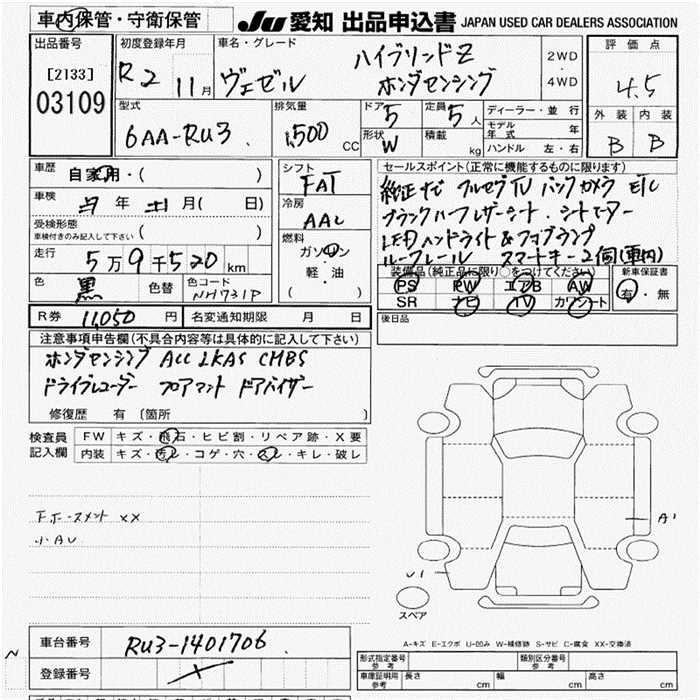 車内保管・守衛保管
JU 愛知 出品申込書 JAPAN USED CAR DEALERS ASSOCIATION
出品番号
[2133]
03109
初度登録年月
R2 11月
車名・グレード
ヴェゼル
ハイブリッドZ
ホンダセンシング
2WD
・
4WD
評価点
4.5
外装 内装
B B
型式
6AA-RU3
排気量
1,500 CC
ドア 5
定員 5人
形状 W
積載 kg
ディーラー・並行
モデル年式 年
ハンドル 左・右
車歴 自家用・( )
車検 年 月( 日)
受検形態
(車検付きのみ記入して下さい) ( )
走行 5万9千520km
色 黒 色替 色コード NH731P
シフト
FAT
冷房
AAC
燃料
ガソリン
軽・油
( )
セールスポイント(正常に機能するものに限ります)
純正ナビ フルセグTV バックカメラ ETC
ブラックハーフレザーシート・シートヒーター
LEDハンドライト&フォグランプ
ルーフレール スマートキー2個(車内)
装備品(純正品に限り○をつけてください)
PS PW エアB AW
SR ナビ TV カワシート
新車保証書
有・無
R券 11,050円 名変通知期限 月 日
後日品
注意事項申告欄(不具合内容等は具体的に記入して下さい)
ホンダセンシング ACC LKAS CMBS
ドライブレコーダー フロアマット ドアバイザー
修復歴 有 [箇所 ]
検査員
記入欄
FW キズ・飛石・ヒビ割・リペア跡・X要
内装 キズ・汚レ・コゲ・穴・スレ・キレ・破レ
下ホースメント XX
小AU
A1
U1
スペア
A-キズ E-エクボ U-凹み W-補修跡 S-サビ C-腐食 XX-交換済
車台番号 RU3-1401706
登録番号
形式指定番号 参考
類別区分番号 参考
車庫証明用 参考 長さ cm 幅 cm 高さ cm